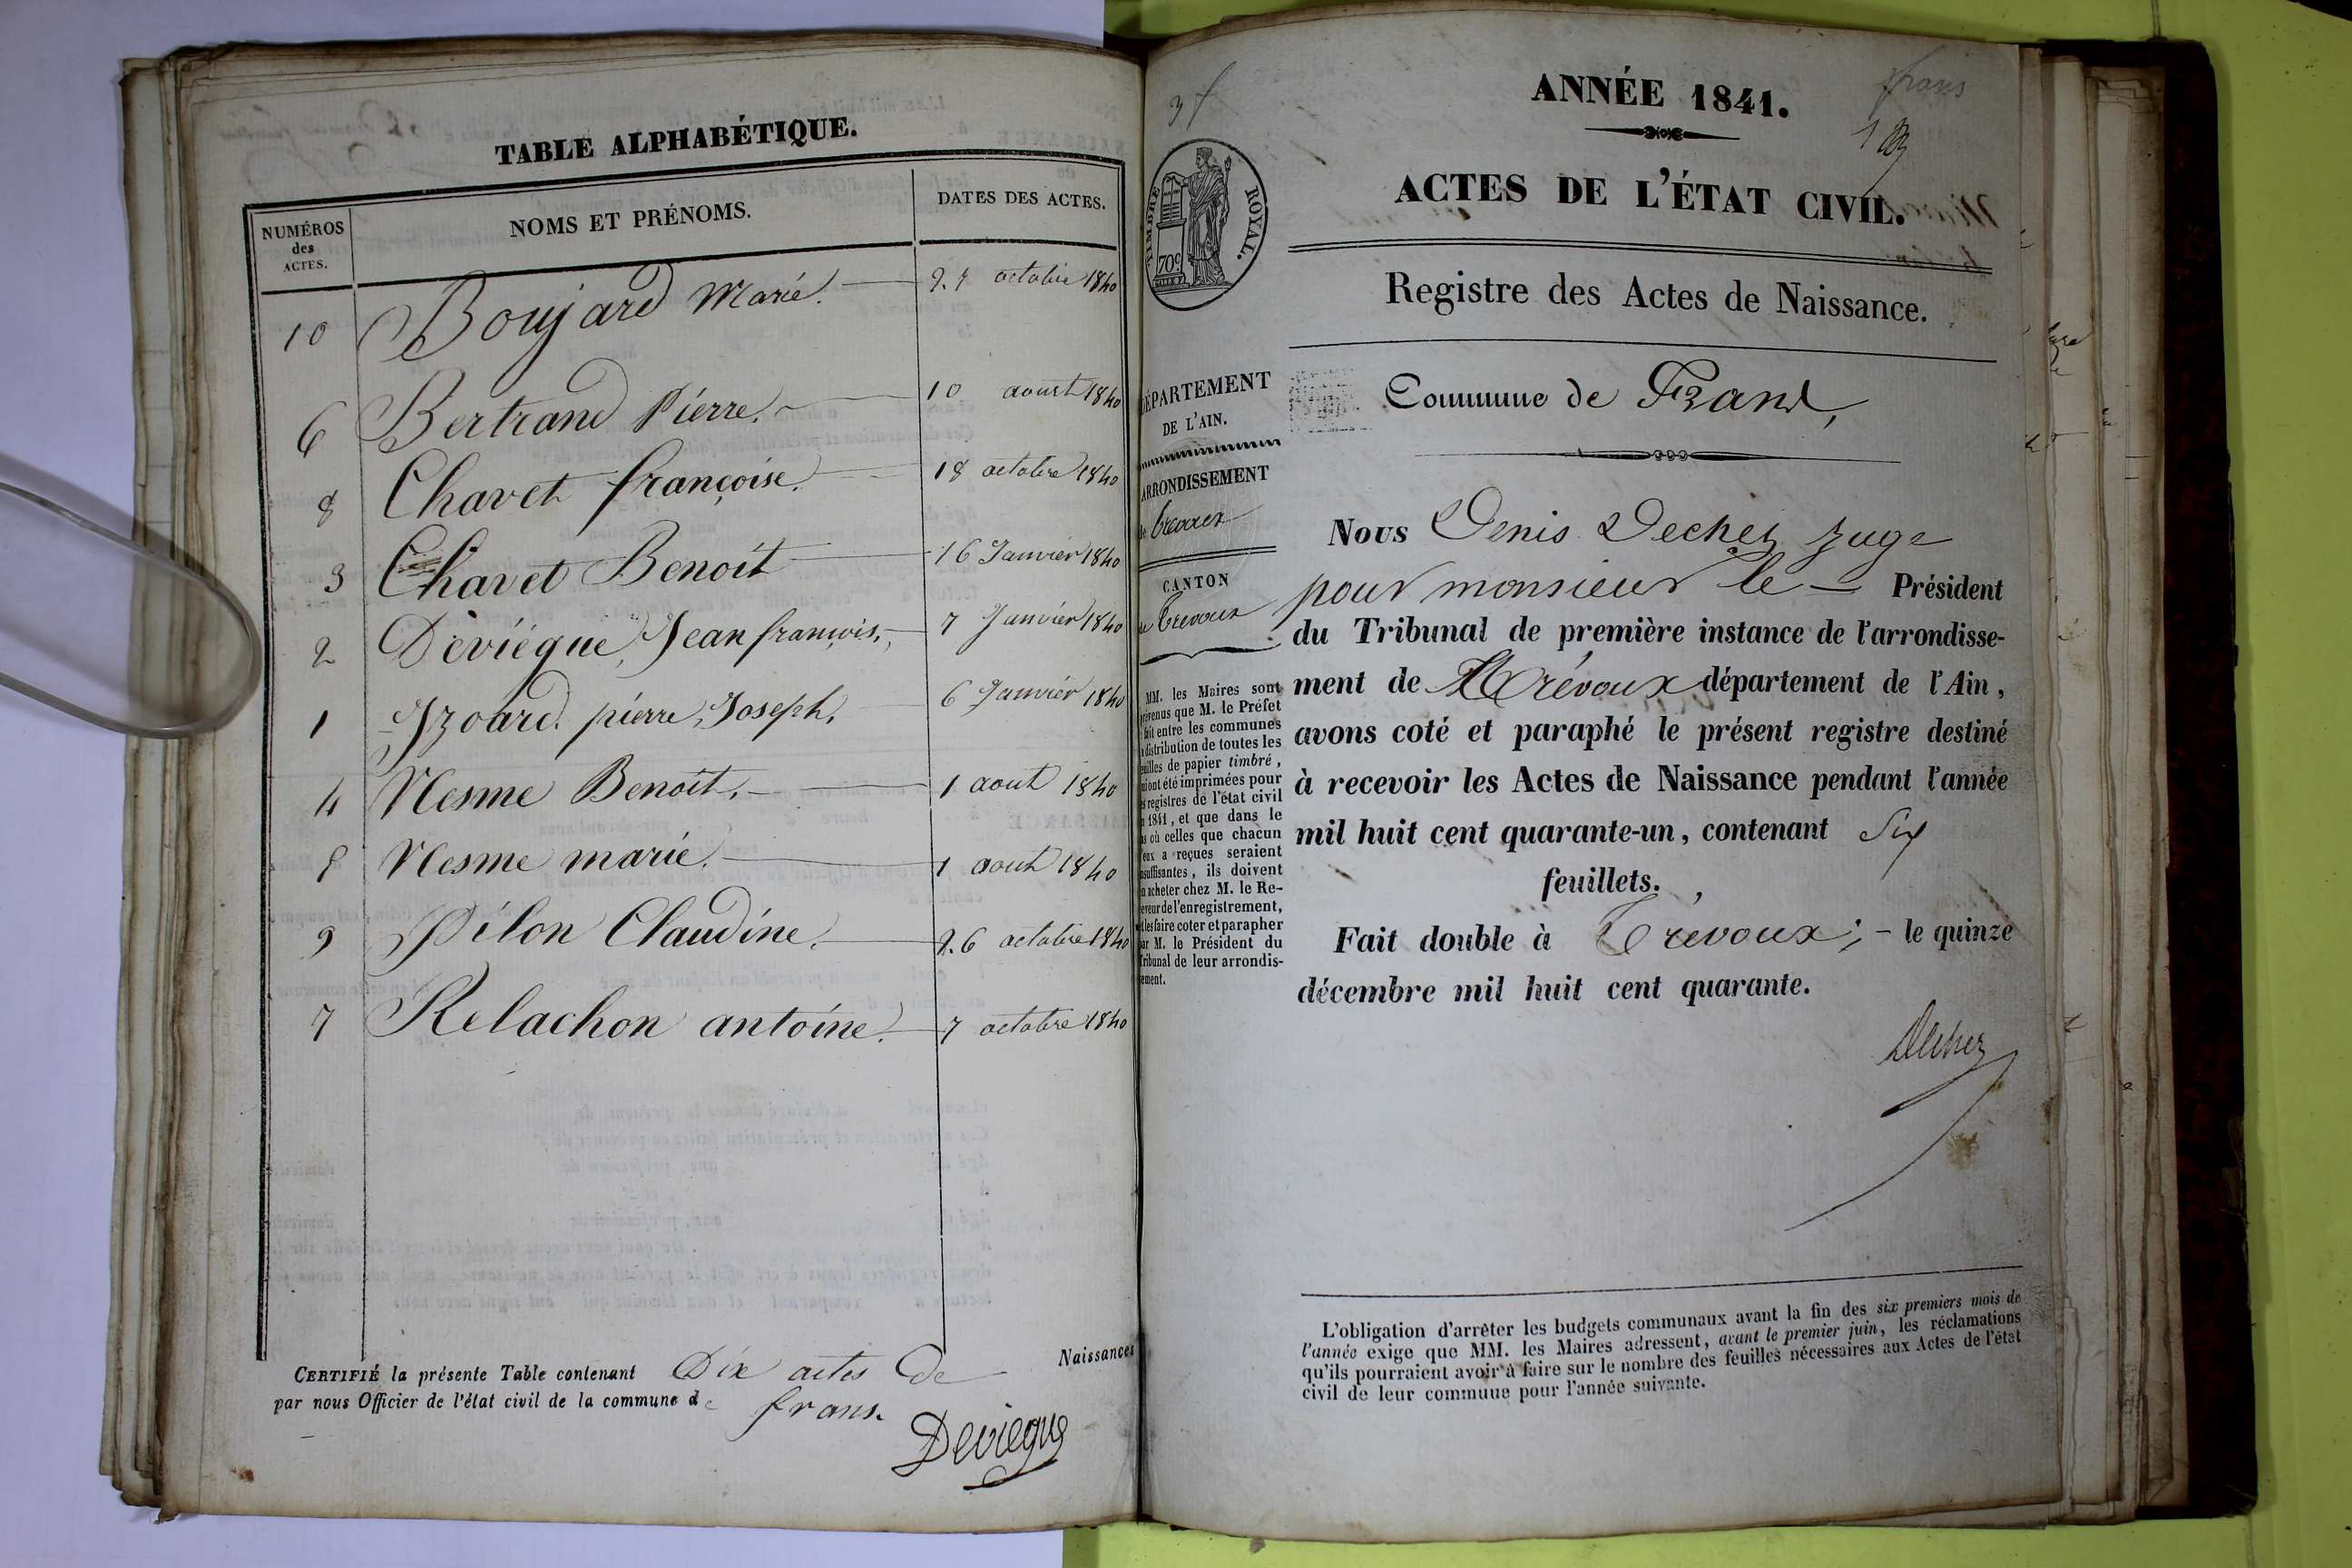 TABLE ALPHABÉTIQUE.
NUMÉROS
des
ACTES.
NOMS ET PRÉNOMS.
DATES DES ACTES.
10 Boujard Marie. 27 octobre 1840
6 Bertrand Pierre. 10 aoust 1840
8 Chavet françoise. 18 octobre 1840
3 Chavet Benoit 16 Janvier 1840
2 Deviégue, Jean françois, 7 Janvier 1840
1 Izoard. pierre, Joseph, 6 Janvier 1840
4 Mesme Benoit. 1 aout 1840
5 Mesme marie. 1 aout 1840
9 Pilon Claudine. 26 octobre 1840
7 Relachon antoine. 7 octobre 1840
CERTIFIÉ la présente Table contenant Dix actes de Naissances
par nous Officier de l'état civil de la commune de frans.
Deviegue
ANNÉE 1841.
frans
ACTES DE L'ÉTAT CIVIL.
TIMBRE ROYAL.
70 c
Registre des Actes de Naissance.
DÉPARTEMENT
DE L'AIN.
ARRONDISSEMENT
de Trevoux
CANTON
de Trevoux
MM. les Maires sont
prévenus que M. le Préfet
fait entre les communes
la distribution de toutes les
feuilles de papier timbré,
qui ont été imprimées pour
les registres de l'état civil
en 1841, et que dans le
cas où celles que chacun
d'eux a reçues seraient
insuffisantes, ils doivent
en acheter chez M. le Re-
ceveur de l'enregistrement,
et les faire coter et parapher
par M. le Président du
Tribunal de leur arrondis-
sement.
Commune de Frans,
Nous Denis Dechez Juge
pour monsieur le – Président
du Tribunal de première instance de l'arrondisse-
ment de Trévoux département de l'Ain,
avons coté et paraphé le présent registre destiné
à recevoir les Actes de Naissance pendant l'année
mil huit cent quarante-un, contenant Six
feuillets.
Fait double à Trévoux; – le quinze
décembre mil huit cent quarante.
Dechez
L'obligation d'arrêter les budgets communaux avant la fin des six premiers mois de
l'année exige que MM. les Maires adressent, avant le premier juin, les réclamations
qu'ils pourraient avoir à faire sur le nombre des feuilles nécessaires aux Actes de l'état
civil de leur commune pour l'année suivante.